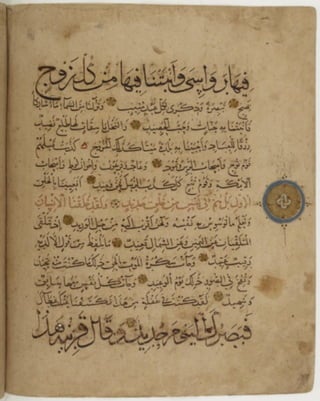 فيها رواسي وأنبتنا فيها من كل زوج
بهيج تبصرة وذكرى لكل عبد منيب ونزلنا من السماء ماء مباركا
فأنبتنا به جنات وحب الحصيد والنخل باسقات لها طلع نضيد
رزقا للعباد وأحيينا به بلدة ميتا كذلك الخروج كذبت قبلهم
قوم نوح وأصحاب الرس وثمود وعاد وفرعون وإخوان لوط وأصحاب
الأيكة وقوم تبع كل كذب الرسل فحق وعيد أفعيينا بالخلق
الأول بل هم في لبس من خلق جديد ولقد خلقنا الإنسان
ونعلم ما توسوس به نفسه ونحن أقرب إليه من حبل الوريد إذ يتلقى
المتلقيان عن اليمين وعن الشمال قعيد ما يلفظ من قول إلا لديه
رقيب عتيد وجاءت سكرة الموت بالحق ذلك ما كنت منه تحيد
ونفخ في الصور ذلك يوم الوعيد وجاءت كل نفس معها سائق
وشهيد لقد كنت في غفلة من هذا فكشفنا عنك غطاءك
فبصرك اليوم حديد وقال قرينه هذا